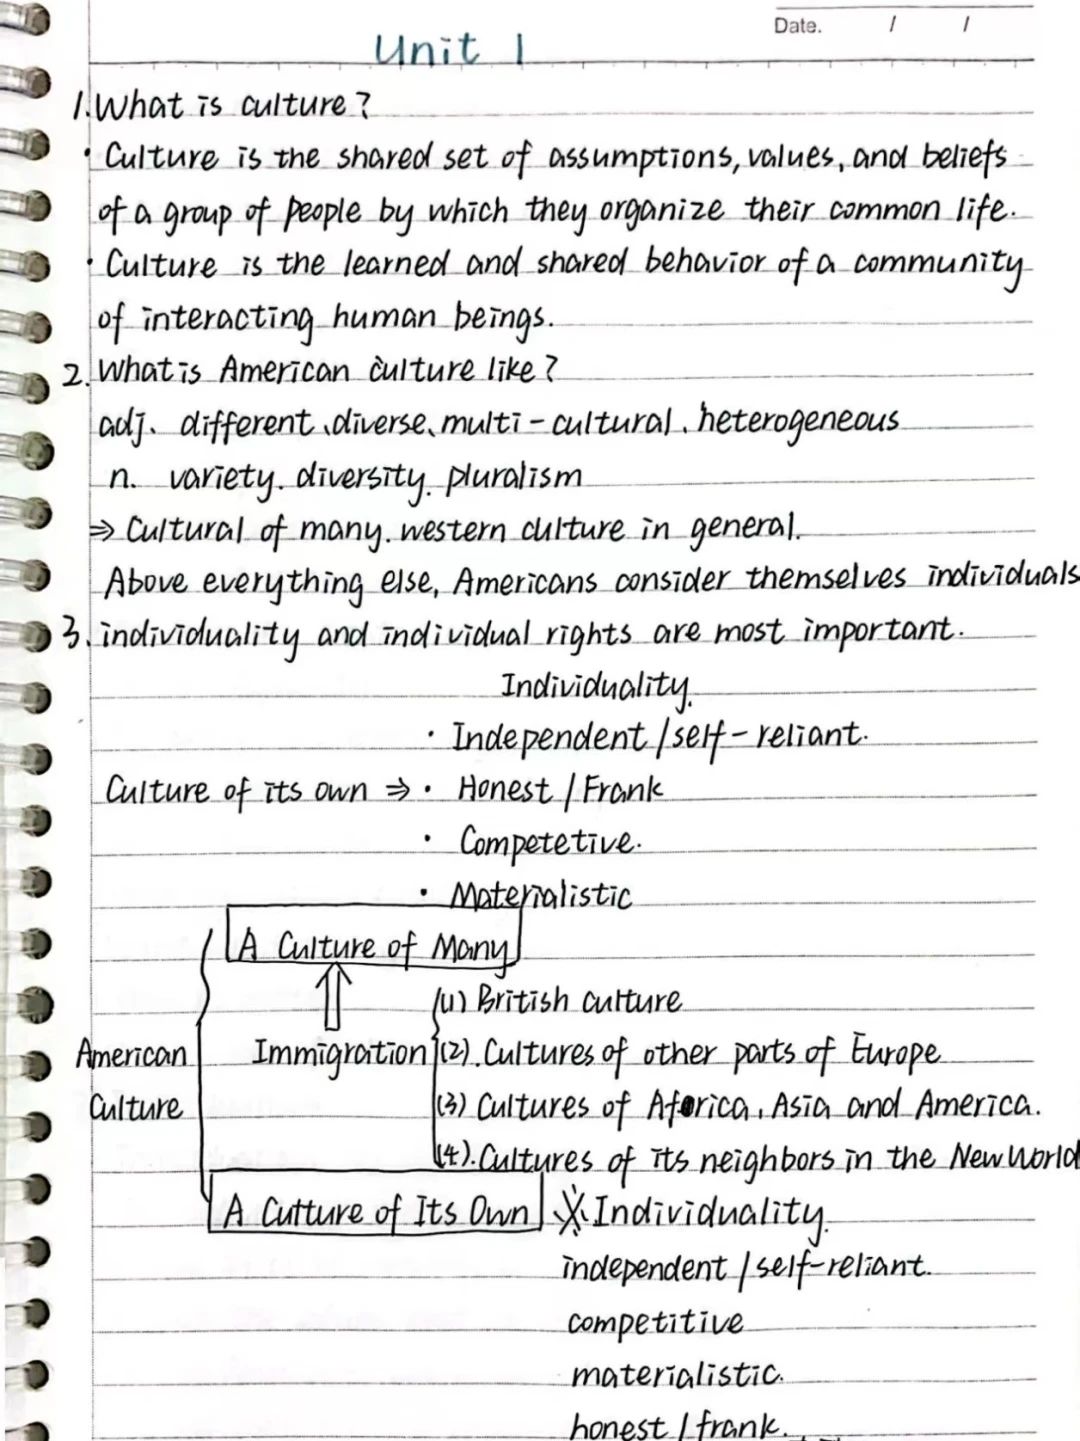 Date. / /
Unit 1
1. What is culture?
· Culture is the shared set of assumptions, values, and beliefs
of a group of people by which they organize their common life.
· Culture is the learned and shared behavior of a community
of interacting human beings.
2. What is American culture like?
adj. different、diverse、multi-cultural、heterogeneous
n. variety. diversity. pluralism
⇒ Cultural of many. western culture in general.
Above everything else, Americans consider themselves individuals
3. individuality and individual rights are most important.
Individuality.
· Independent / self-reliant.
Culture of its own ⇒ · Honest / Frank
· Competetive.
· Materialistic
A Culture of Many
(1) British culture
American Immigration (2). Cultures of other parts of Europe
Culture (3) Cultures of Africa, Asia and America.
(4). Cultures of its neighbors in the New World
A Cutture of Its Own ※ Individuality.
independent / self-reliant.
competitive
materialistic.
honest / frank.